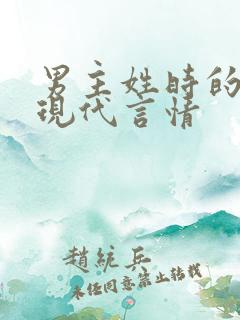 男主姓時的
現代言情
趙統兵
未經同意禁止轉載